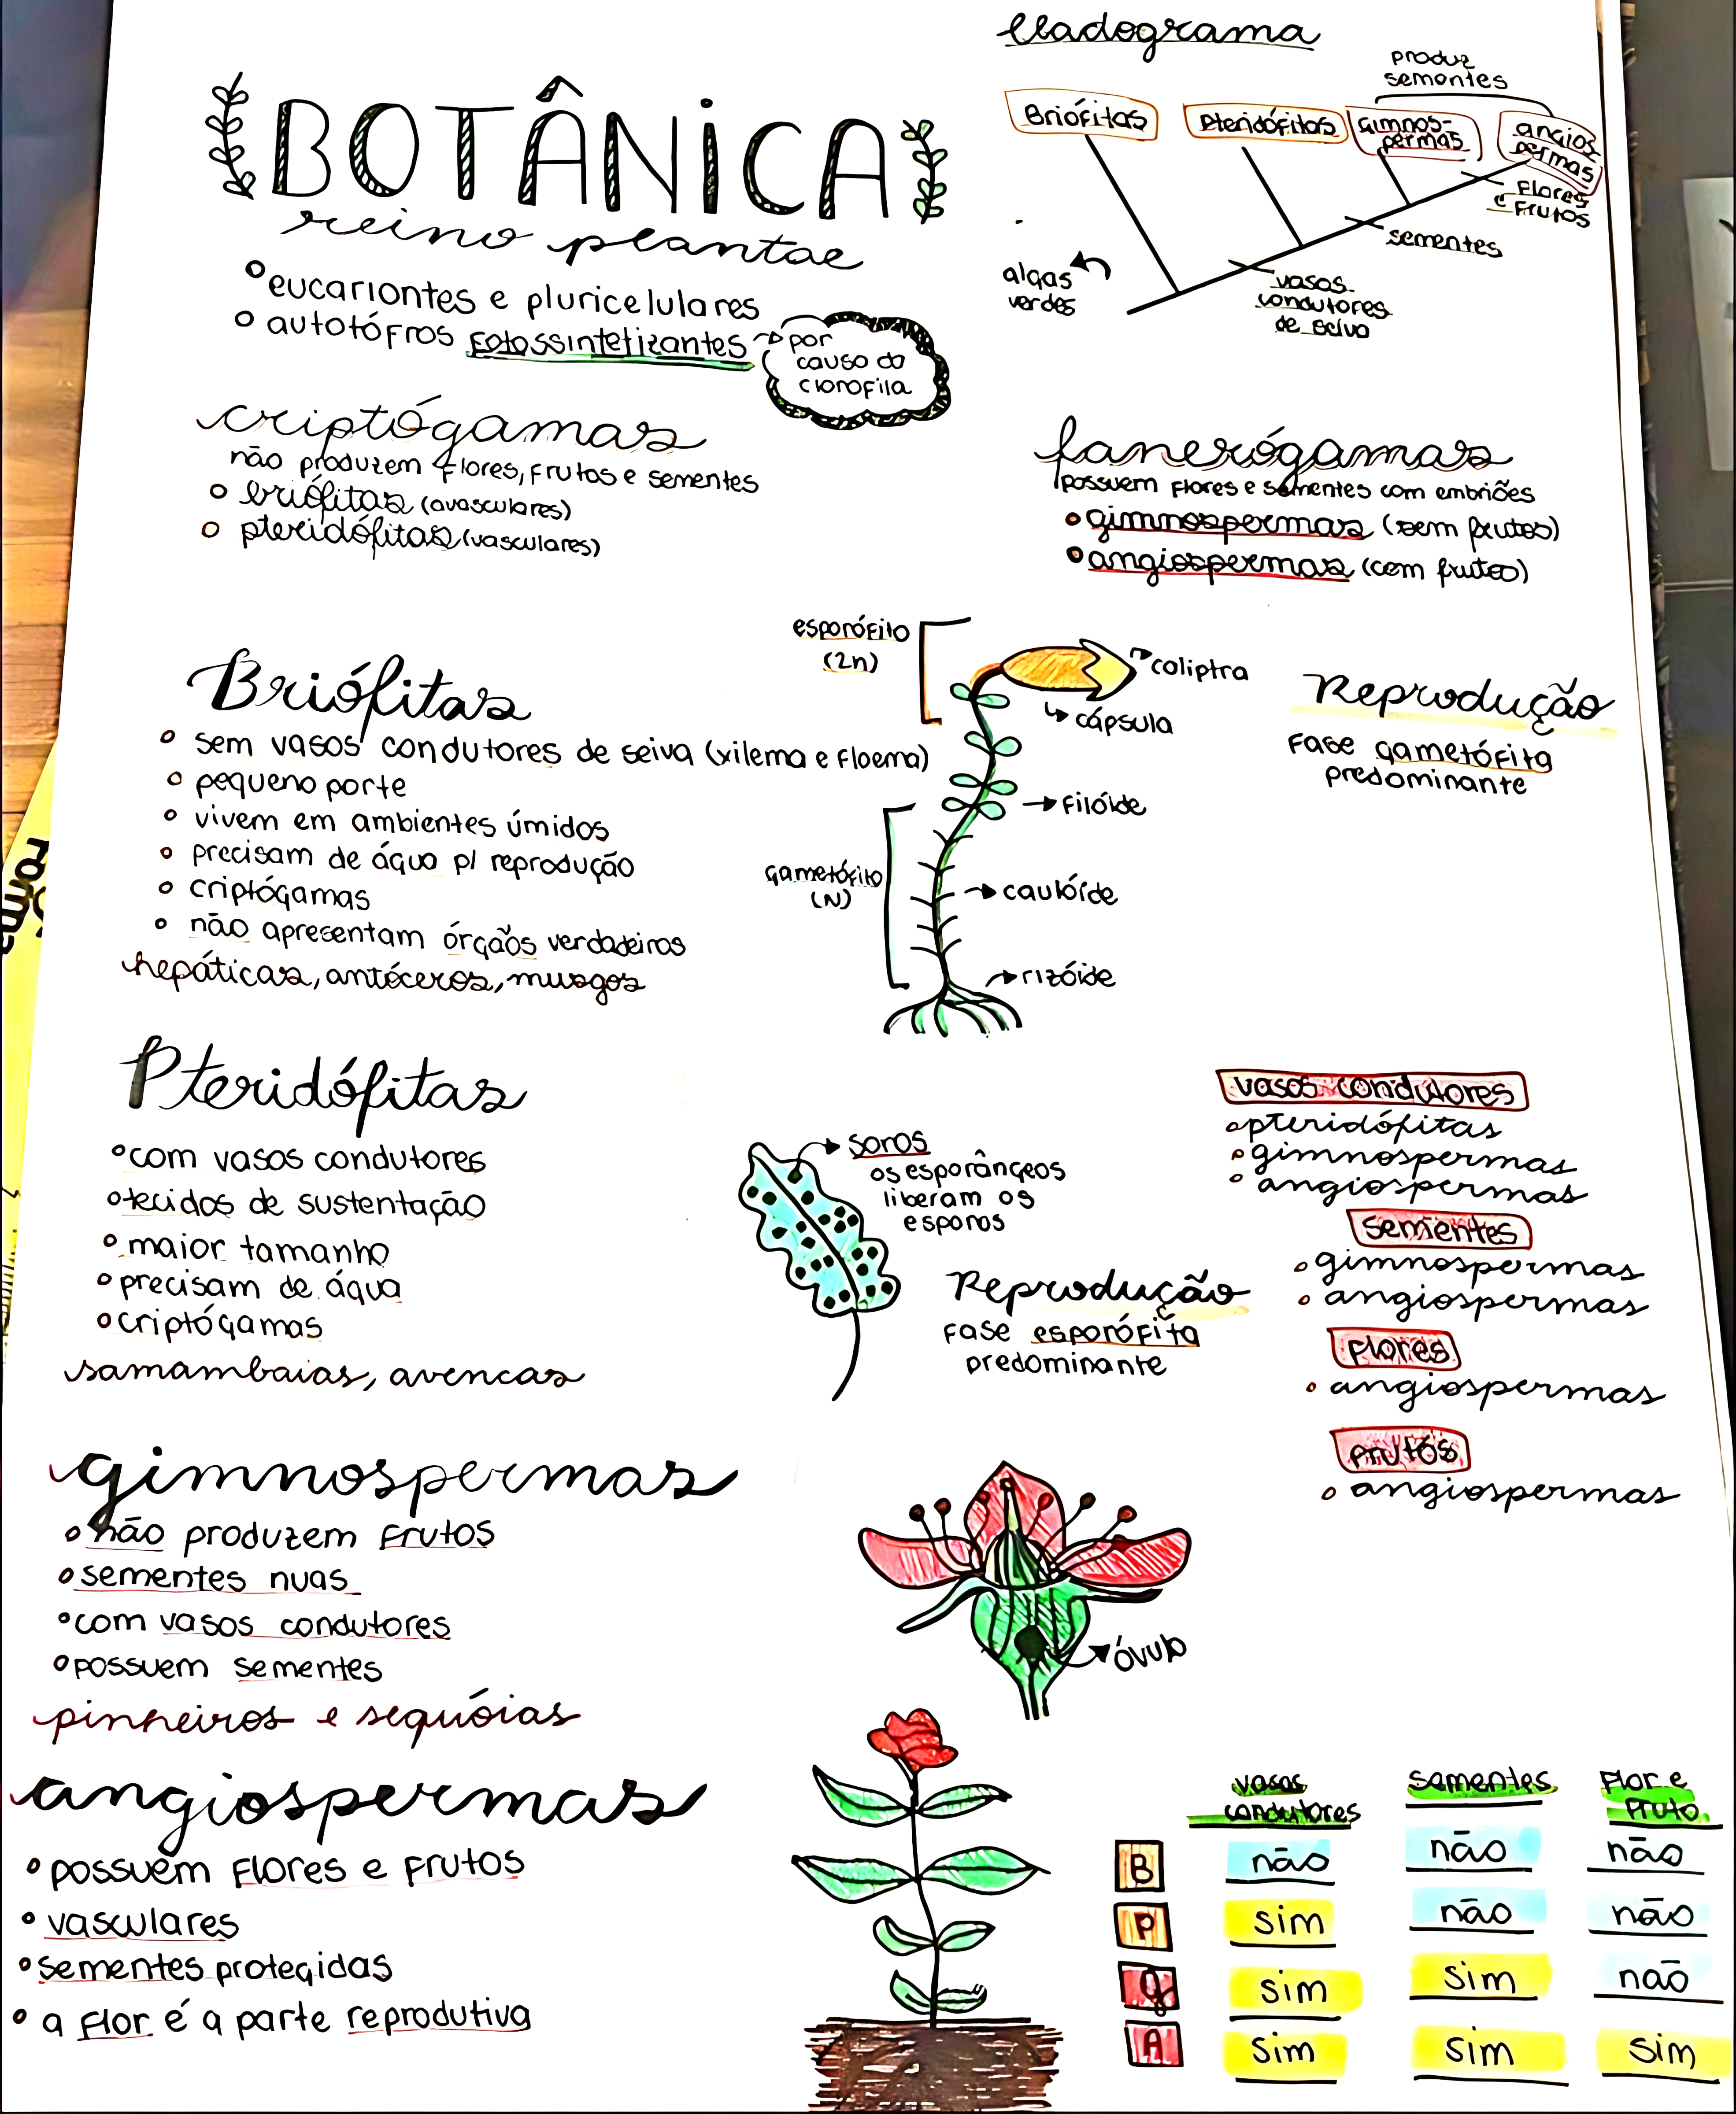 BOTÂNICA
reino plantae
eucariontes e pluricelulares
autotófros fotossintetizantes
por
causa da
clorofila
Cladograma
produz
sementes
Briófitas
Pteridófitas
Gimnos-
permas
angios
permas
Flores
e Frutos
sementes
vasos
condutores
de seiva
algas
verdes
criptógamas
não produzem flores, frutos e sementes
briófitas (avasculares)
pteridófitas (vasculares)
fanerógamas
possuem flores e sementes com embriões
gimnospermas (sem frutos)
angiospermas (com frutos)
Briófitas
sem vasos condutores de seiva (xilema e floema)
pequeno porte
vivem em ambientes úmidos
precisam de água p/ reprodução
criptógamas
não apresentam órgãos verdadeiros
hepáticas, antóceros, musgos
esporófito
(2n)
coliptra
cápsula
filóide
gametófito
(N)
caulóide
rizóide
Reprodução
Fase gametófita
predominante
Pteridófitas
com vasos condutores
tecidos de sustentação
maior tamanho
precisam de água
criptógamas
samambaias, avencas
soros
os esporângeos
liberam os
esporos
Reprodução
Fase esporófita
predominante
vasos condutores
pteridófitas
gimnospermas
angiospermas
sementes
gimnospermas
angiospermas
flores
angiospermas
frutos
angiospermas
gimnospermas
não produzem frutos
sementes nuas
com vasos condutores
possuem sementes
pinheiros e sequóias
óvulo
angiospermas
possuem flores e frutos
vasculares
sementes protegidas
a flor é a parte reprodutiva
vasos condutores sementes Flor e fruto
B não não não
P sim não não
g sim sim não
A sim sim sim